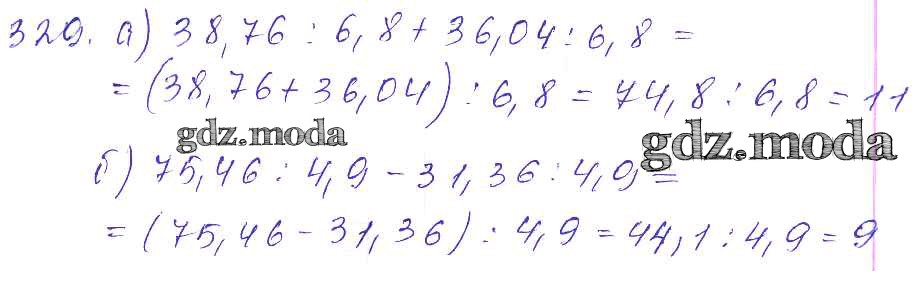 329. а) 38,76 : 6,8 + 36,04 : 6,8 =
= (38,76 + 36,04) : 6,8 = 74,8 : 6,8 = 11
gdz.moda
gdz.moda
б) 75,46 : 4,9 - 31,36 : 4,9 =
= (75,46 - 31,36) : 4,9 = 44,1 : 4,9 = 9